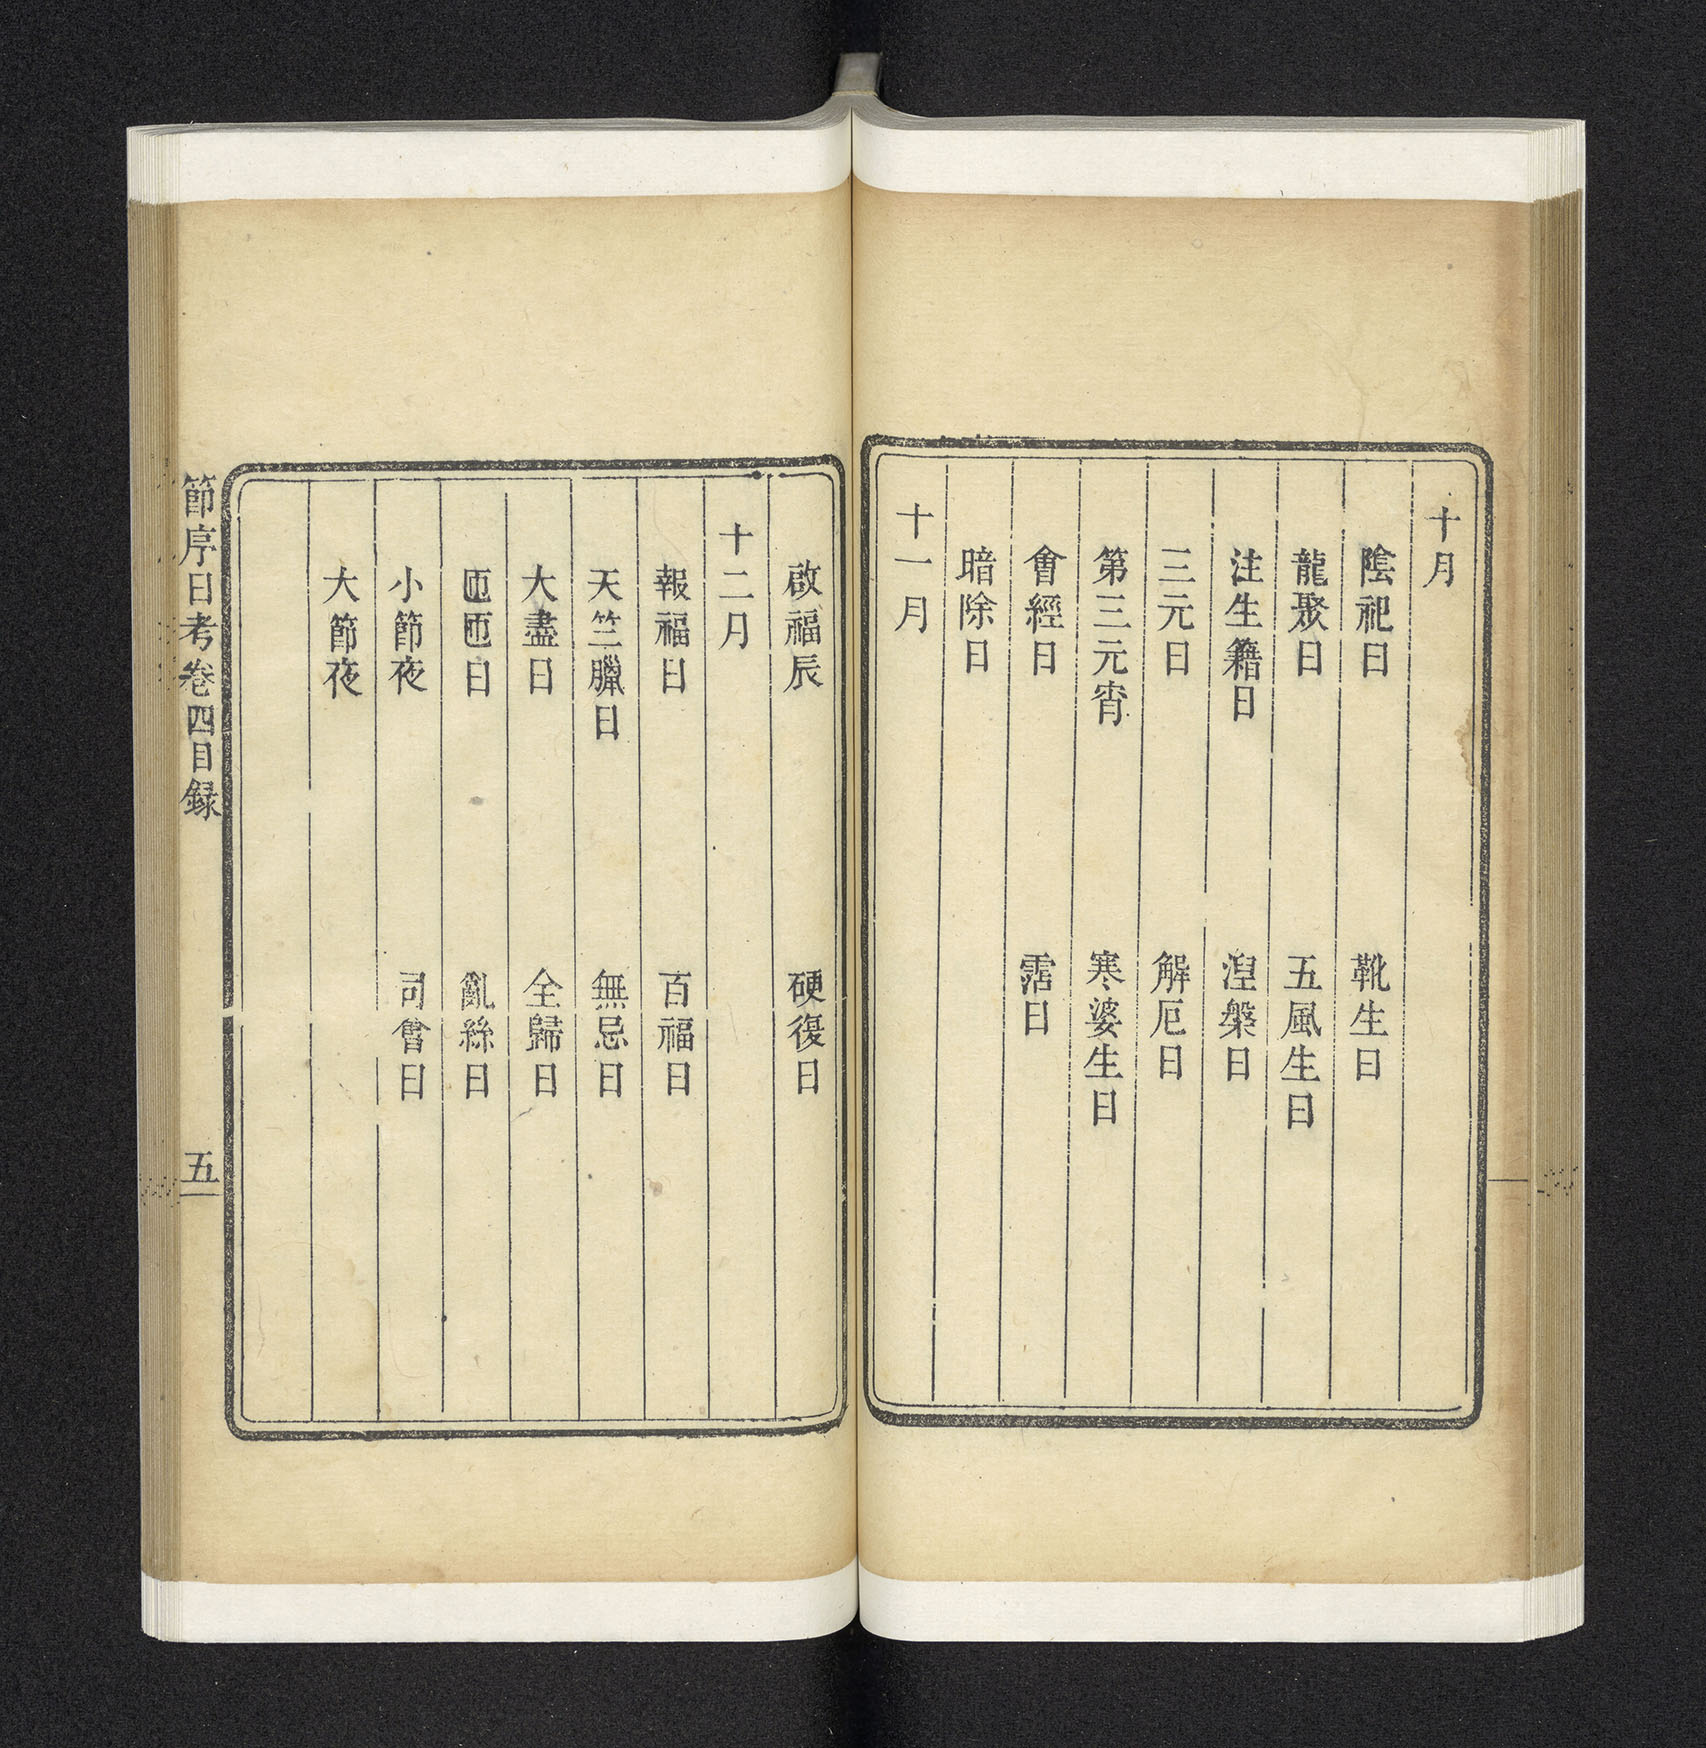 十月
陰祀日　靴生日
龍聚日　五風生日
注生籍日　湼槃日
三元日　解厄日
第三元宵　寒婆生日
會經日　霑日
暗除日
十一月
啟福辰　硬復日
十二月
報福日　百福日
天竺臘日　無忌日
大盡日　全歸日
帀帀日　亂絲日
小節夜　司會日
大節夜
節序日考卷四目録　五